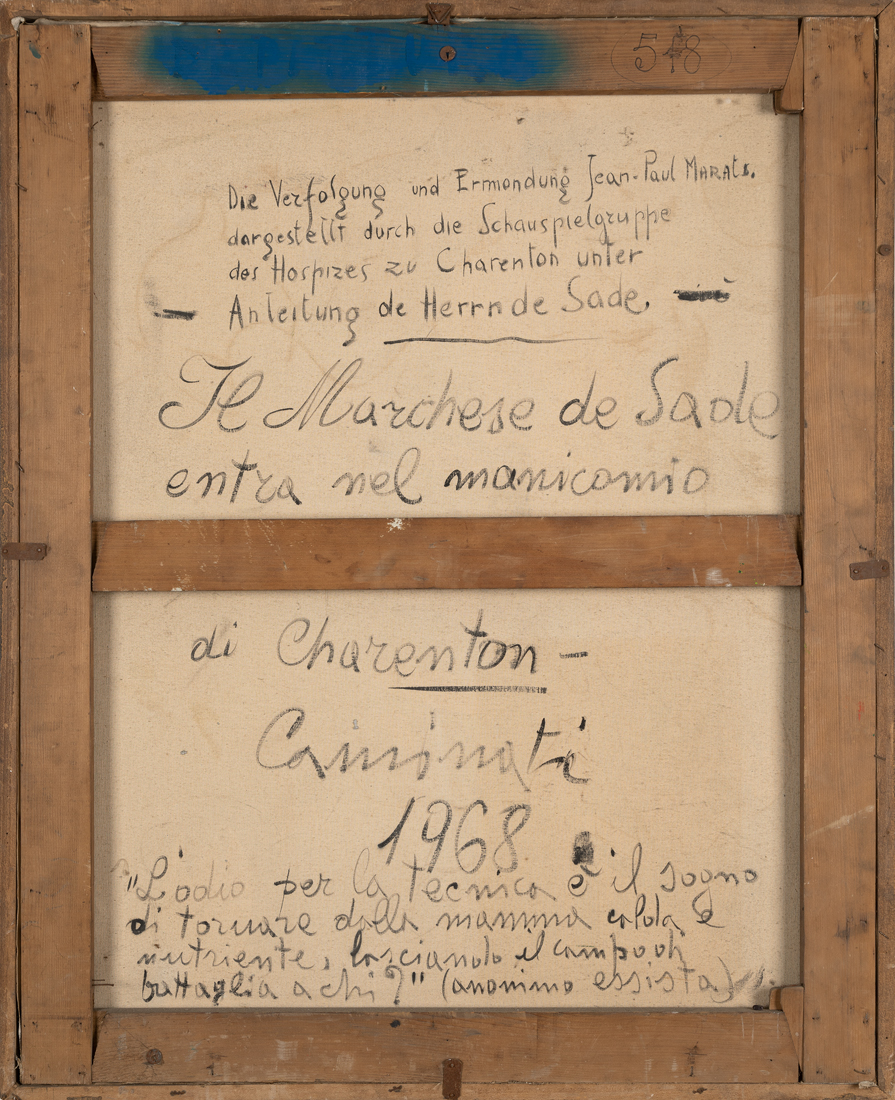 548
Die Verfolgung und Ermondung Jean-Paul MARATs.
dargestellt durch die Schauspielgruppe
des Hospizes zu Charenton unter
— Anleitung de Herrn de Sade. —
Il Marchese de Sade
entra nel manicomio
di Charenton -
Caminati
1968
"L'odio per la tecnica è il sogno
di tornare dalla mamma calda e
nutriente, lasciando il campo di
battaglia a chi?" (anonimo essista)